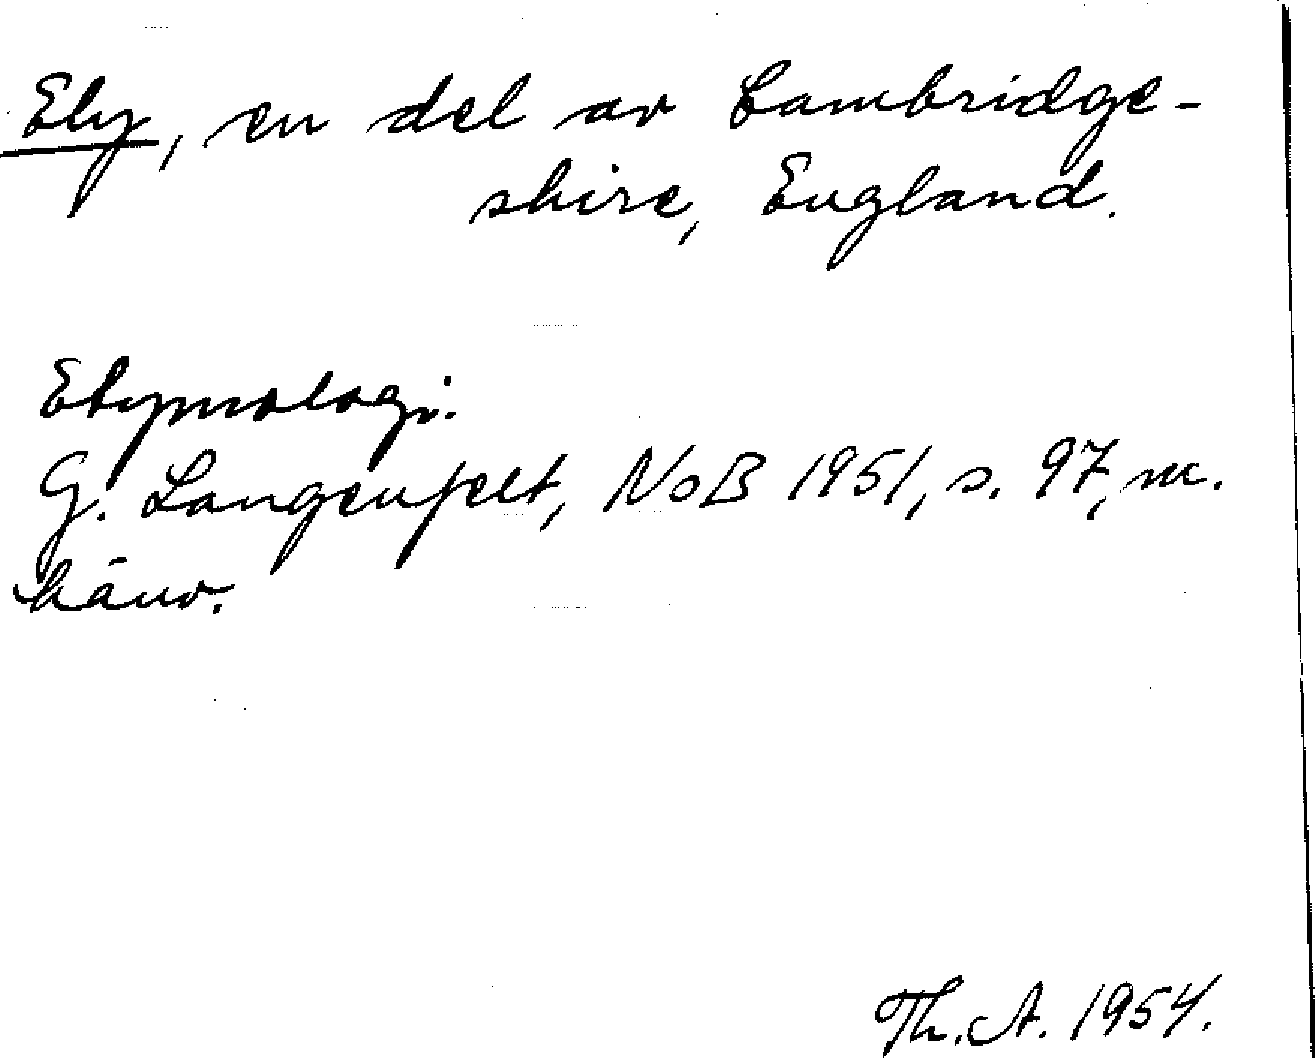 Ely, en del av Cambridge-
shire, England.
Etymologi.
G. Langenfelt, NoB 1951, s. 97, m.
hänv.
Th. A. 1954.